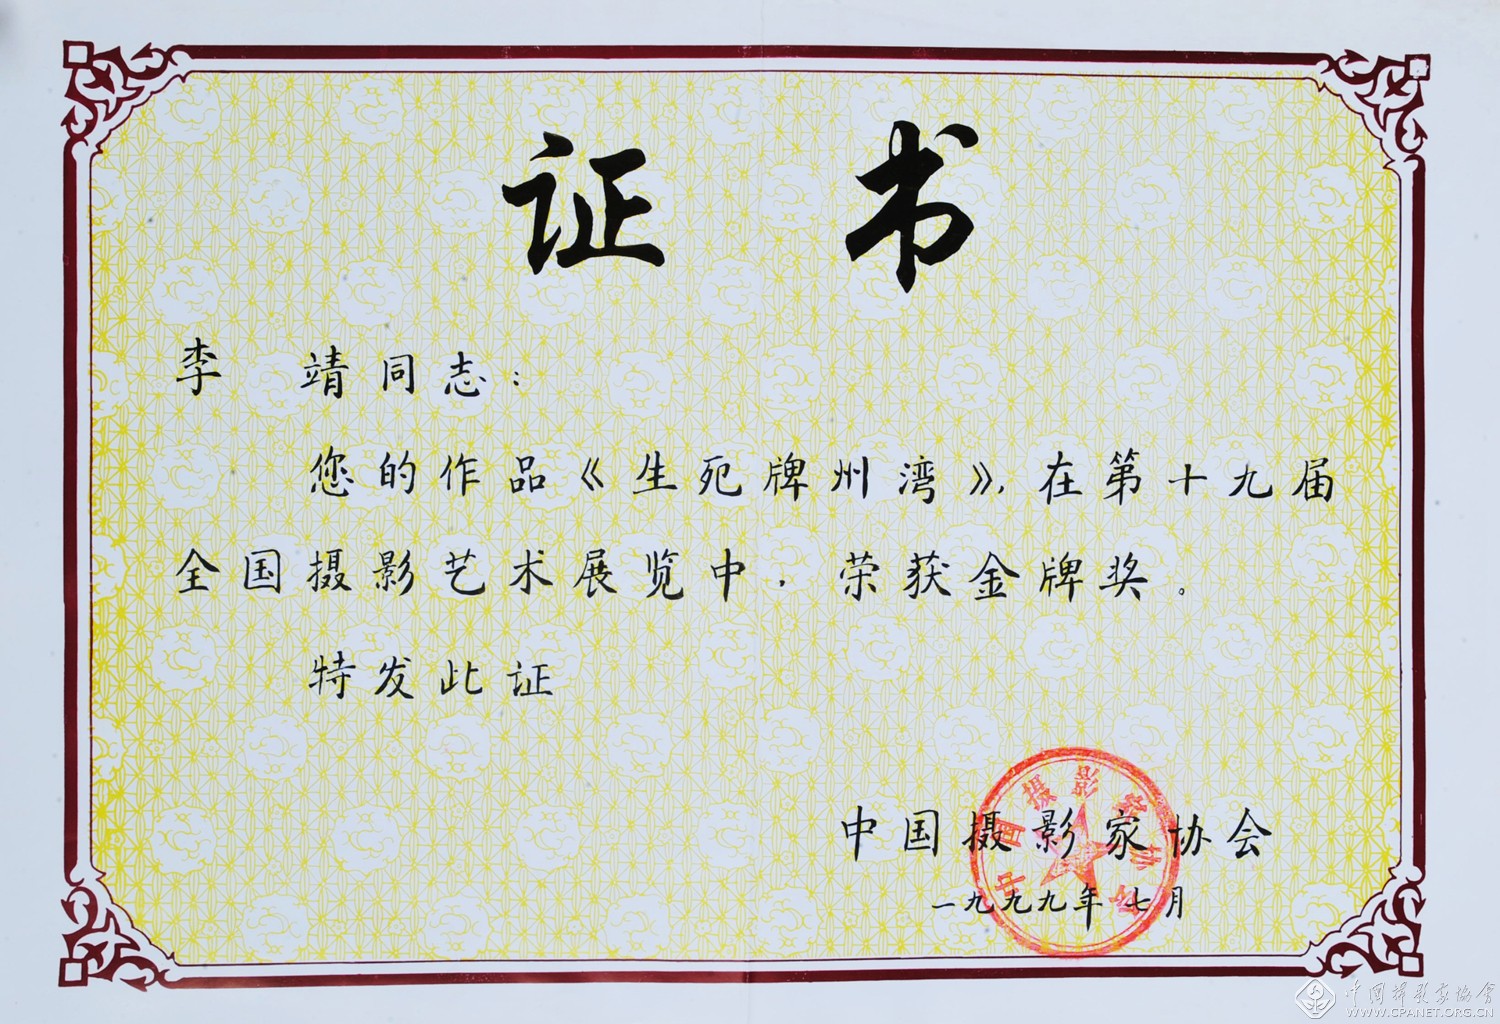 证书
李 靖同志：
您的作品《生死牌州湾》，在第十九届
全国摄影艺术展览中，荣获金牌奖。
特发此证
中国摄影家协会
一九九九年七月
中国摄影家协会
中国摄影家协會
WWW.CPANET.ORG.CN